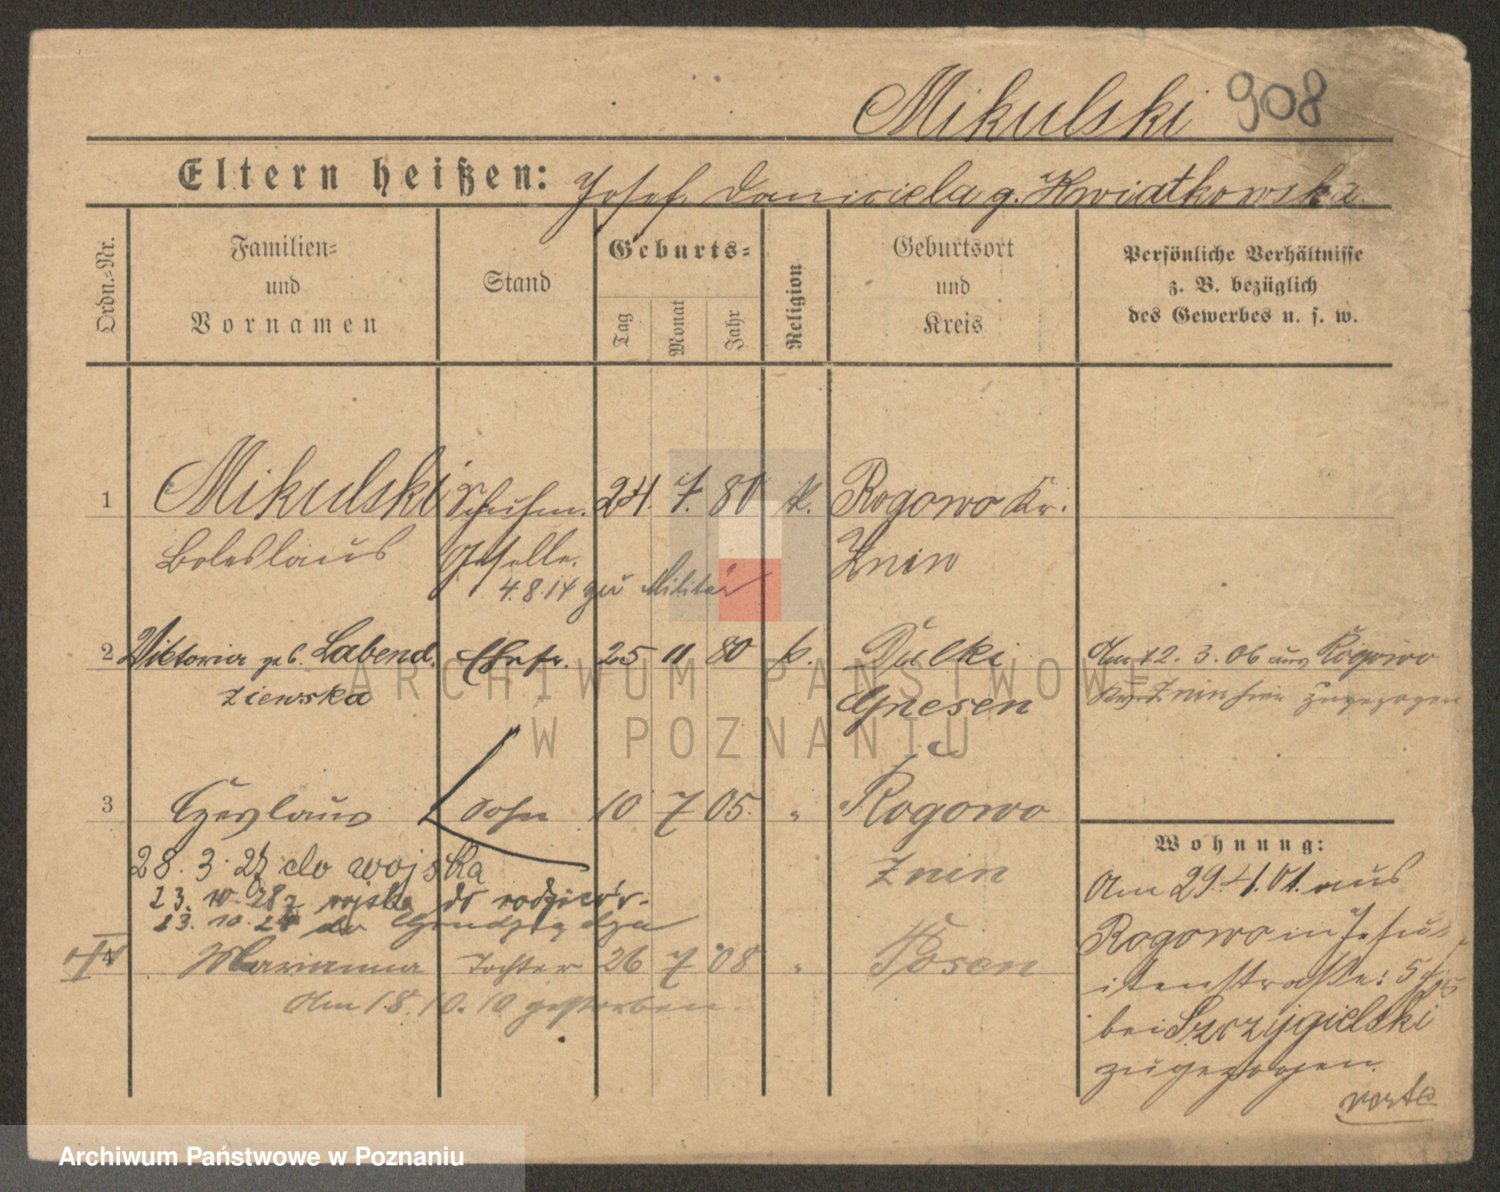 Mikulski 908
Eltern heißen: Josef, g. Kwiatkowska.
Ordn.-Nr.
Familien-
und
Vornamen
Stand
Geburts-
Tag
Monat
Jahr
Religion
Geburtsort
und
Kreis
Persönliche Verhältnisse
z. B. bezüglich
des Gewerbes u. s. w.
1 Mikulski Schuhm. 24. 7. 80 k. Rogowo Kr.
Boleslaus Geselle. Znin
4.8.14 zu Militär
2 Victoria geb. Labend Ehefr. 25 11 80 k. Dulki Am 12. 3. 06 aus Rogowo
ziewska Gnesen Kr. Znin hier zugezogen
3 Czeslaus Sohn 10 7 05. " Rogowo
28. 3. 27 do wojska Znin
23. 10. 28 z wojska do rodziców.
23. 10. do Grudziądza
4 Marianna Tochter 26 7 08 " Posen
Am 18. 10. 10 gestorben.
Wohnung:
Am 29.4.01. aus
Rogowo in Jesu-
itenstraße: 5
bei Szczygielski
zugezogen.
verte
ARCHIWUM PAŃSTWOWE
W POZNANIU
Archiwum Państwowe w Poznaniu